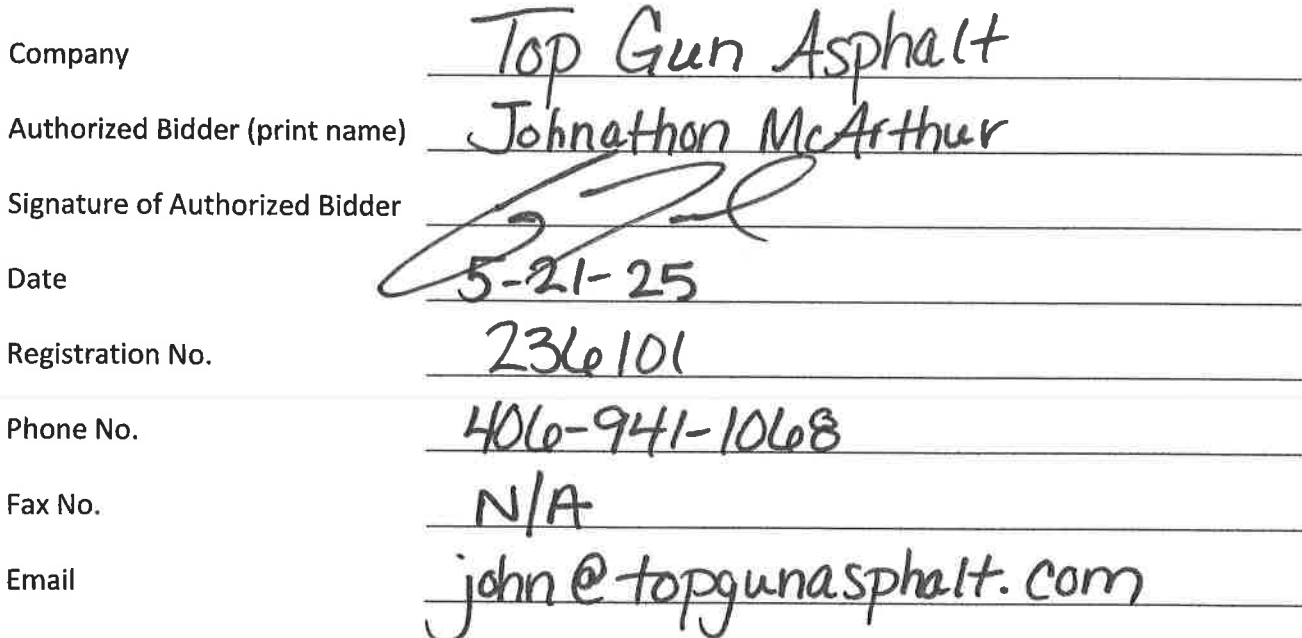 Company Top Gun Asphalt
Authorized Bidder (print name) Johnathon McArthur
Signature of Authorized Bidder
Date 5-21-25
Registration No. 236101
Phone No. 406-941-1068
Fax No. N/A
Email john@topgunasphalt.com